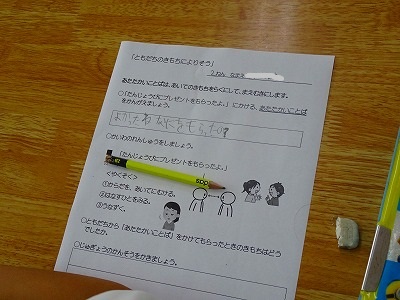 「ともだちのきもちによりそう」
2ねん なまえ
あたたかいことばは、あいてのきもちをらくにして、まえむきにします。
○「たんじょうびにプレゼントをもらったよ。」にかける、あたたかいことば
をかんがえましょう。
よかったね なにをもらったの?
○かいわのれんしゅうをしましょう。
「たんじょうびにプレゼントをもらったよ。」
<やくそく>
①からだを、あいてにむける。
②はなすひとをみる。
③うなずく。
○ともだちから「あたたかいことば」をかけてもらったときのきもちはどう
でしたか。
○じゅぎょうのかんそうをかきましょう。